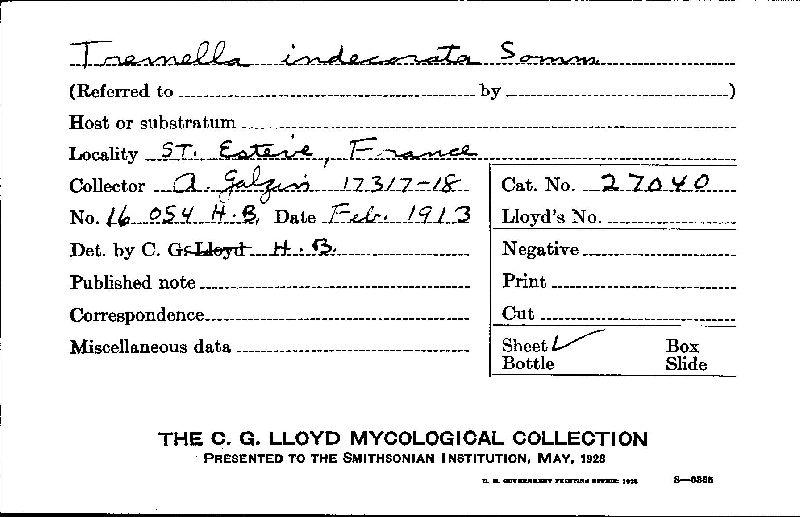 Tremella indecorata Somm
(Referred to by )
Host or substratum
Locality ST. Esteve, France
Collector A. Galzin 17317-18
No. 16 054 H.B, Date Feb. 1913
Det. by C. G. Lloyd H.B.
Published note
Correspondence
Miscellaneous data
Cat. No. 27040
Lloyd's No.
Negative
Print
Cut
Sheet ✓ Box
Bottle Slide
THE C. G. LLOYD MYCOLOGICAL COLLECTION
PRESENTED TO THE SMITHSONIAN INSTITUTION, MAY, 1928
U. S. GOVERNMENT PRINTING OFFICE: 1928